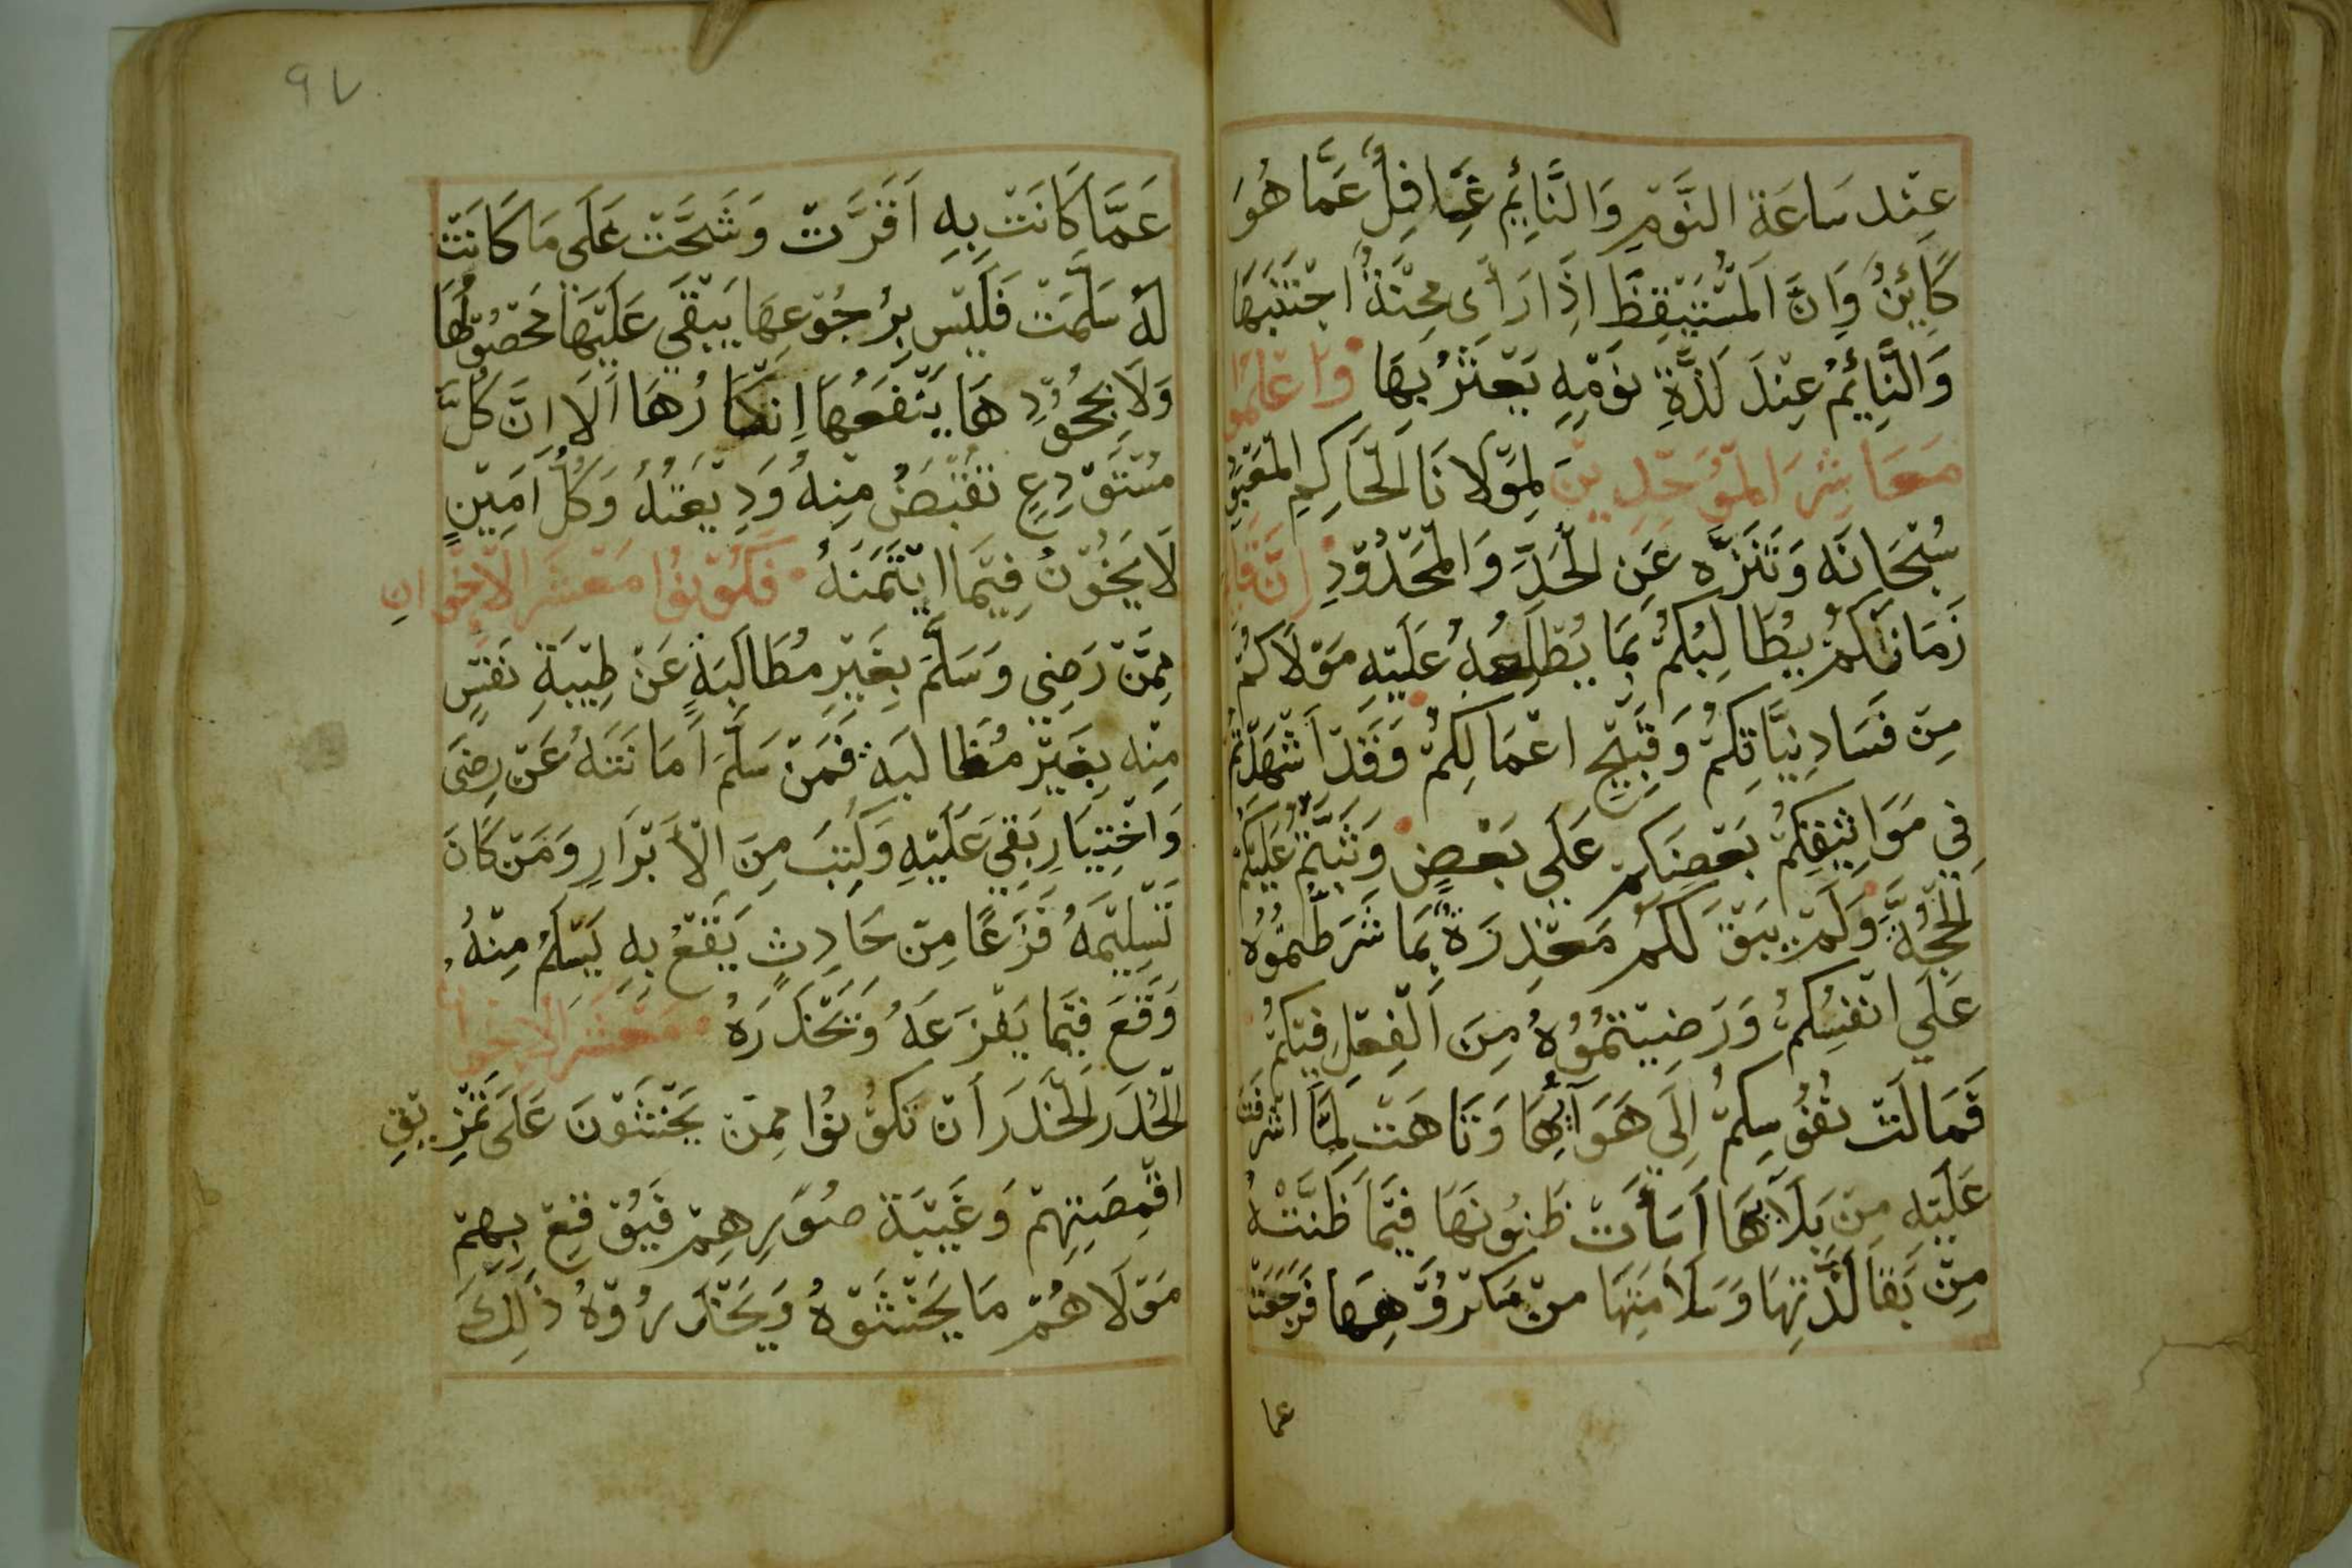 عِنْد سَاعَة النَّوْمِ وَالنَّائِمُ غَافِلٌ عَمَّا هُوَ
كَائِنٌ وَاِنَّ الْمُسْتَيْقِظَ اِذَا رَأَى مِحْنَةً اجْتَنَبَهَا
وَالنَّائِمُ عِنْدَ لَذَّةِ نَوْمِهِ يَعْثَرُ بِهَا وَاعْلَمُوا
مَعَاشِرَ الْمُوَحِّدِيْنَ لِمَوْلَانَا الْحَاكِمِ الْمَعْبُوْدِ
سُبْحَانَه وَتَنَزَّه عَنِ الْحَدِّ وَالْمَحْدُوْدِ اِنَّ قَائِمَ
زَمَانِكُمْ يُطَالِبُكُمْ بِمَا يُطْلِعُهُ عَلَيْهِ مَوْلَاكُمْ
مِنْ فَسَادِ نِيَّاتِكُمْ وَقَبِيْحِ اعْمَالِكُمْ وَقَدْ اَشْهَدْتُمْ
فِي مَوَاثِيْقِكُمْ بَعْضَكُمْ عَلَى بَعْضٍ وَثَبَتَتْ عَلَيْكُمُ
الْحُجَّةُ وَلَمْ يَبْقَ لَكُمْ مَعْذِرَةٌ بِمَا شَرَطْتُمُوْهُ
عَلَى انْفُسِكُمْ وَرَضِيْتُمُوْهُ مِنَ الْفِعْلِ فِيْكُمْ
فَمَالَتْ نُفُوسِكُمْ اِلَى هَوَآئِهَا وَتَاهَتْ لِمَّا اشْرَفَتْ
عَلَيْهِ مِنْ بَلَآئِهَا اَسَأَتْ ظُنُونَهَا فِيْمَا ظَنَّتْهُ
مِنْ بَقَا لَذَّتِهَا وَسَلَامَتِهَا مِنْ مَكْرُوْهِهَا فَرَجَعَتْ
عما
٩٧
عَمَّا كَانَتْ بِهِ اَقَرَّتْ وَشَحَّتْ عَلَى مَا كَانَتْ
لَهُ سَلَّمَتْ فَلَيْس بِرُجُوْعِهَا يَبْقَى عَلَيْهَا مَحْصُوْلُهَا
وَلَا بِجُحُوْدِهَا يَنْفَعُهَا اِنْكَارُهَا اَلَا اِنَّ كُلَّ
مُسْتَوْدِعٍ تُقْبَضُ مِنْهُ وَدِيْعَتُهُ وَكُلُّ اَمِيْنٍ
لَا يَخُوْنُ فِيْمَا ايْتَمَنَهُ فَكُوْنُوْا مَعْشَرَ الْاَخْوَانِ
مِمَّنْ رَضِي وَسَلَّمَ بِغَيْرِ مُطَالَبَةٍ عَنْ طِيْبَةِ نَفْسٍ
مِنْه بِغَيْرِ مُطَالبَةٍ فَمَنْ سَلَّمَ اَمَانَتَهُ عَنْ رِضَى
وَاخْتِيَارِ بَقِيَ عَلَيْهِ وَكُتِبَ مِنَ الْاَبْرَارِ وَمَنْ كَانَ
تَسْلِيْمُهُ فَزَعًا مِنْ حَادِثٍ يَقَعُ بِهِ يَسْلَمُ مِنْهُ
وَقَعَ فِيْمَا يَفْزَعهُ وَيَحْذَرَهُ مَعْشَر الاِخْوَان
الْحَذَر الْحَذَرَ أَنْ تَكُوْنُوْا مِمَّنْ يَجْتَثُوْنَ عَلَى تَمْزِيْقِ
اقْمِصَتِهِمْ وَغَيْبَة صُوَرِهِمْ فَيُوْقِعْ بِهِمْ
مَوْلَاهُمْ مَا يَخْتَشُوْهُ وَيَحْذَرُوْهُ ذَلِكَ